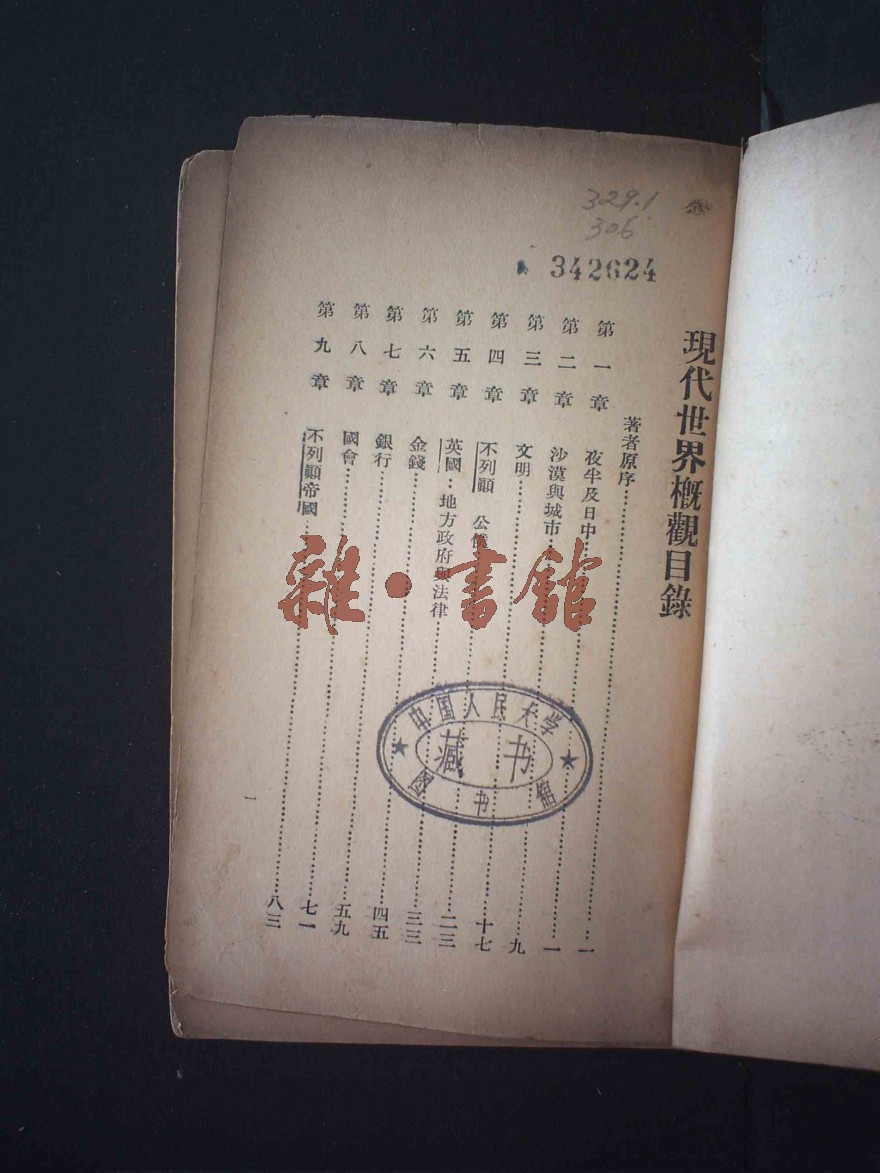 329.1
306
342624
現代世界概觀目錄
著者原序……一
第一章 夜半及日中……一
第二章 沙漠與城市……九
第三章 文明……十七
第四章 不列顛 公……二三
第五章 英國：地方政府與法律……三三
第六章 金錢……四五
第七章 銀行……五九
第八章 國會……七一
第九章 不列顛帝國……八三
一
雜·書館
中国人民大学
藏书
图书馆